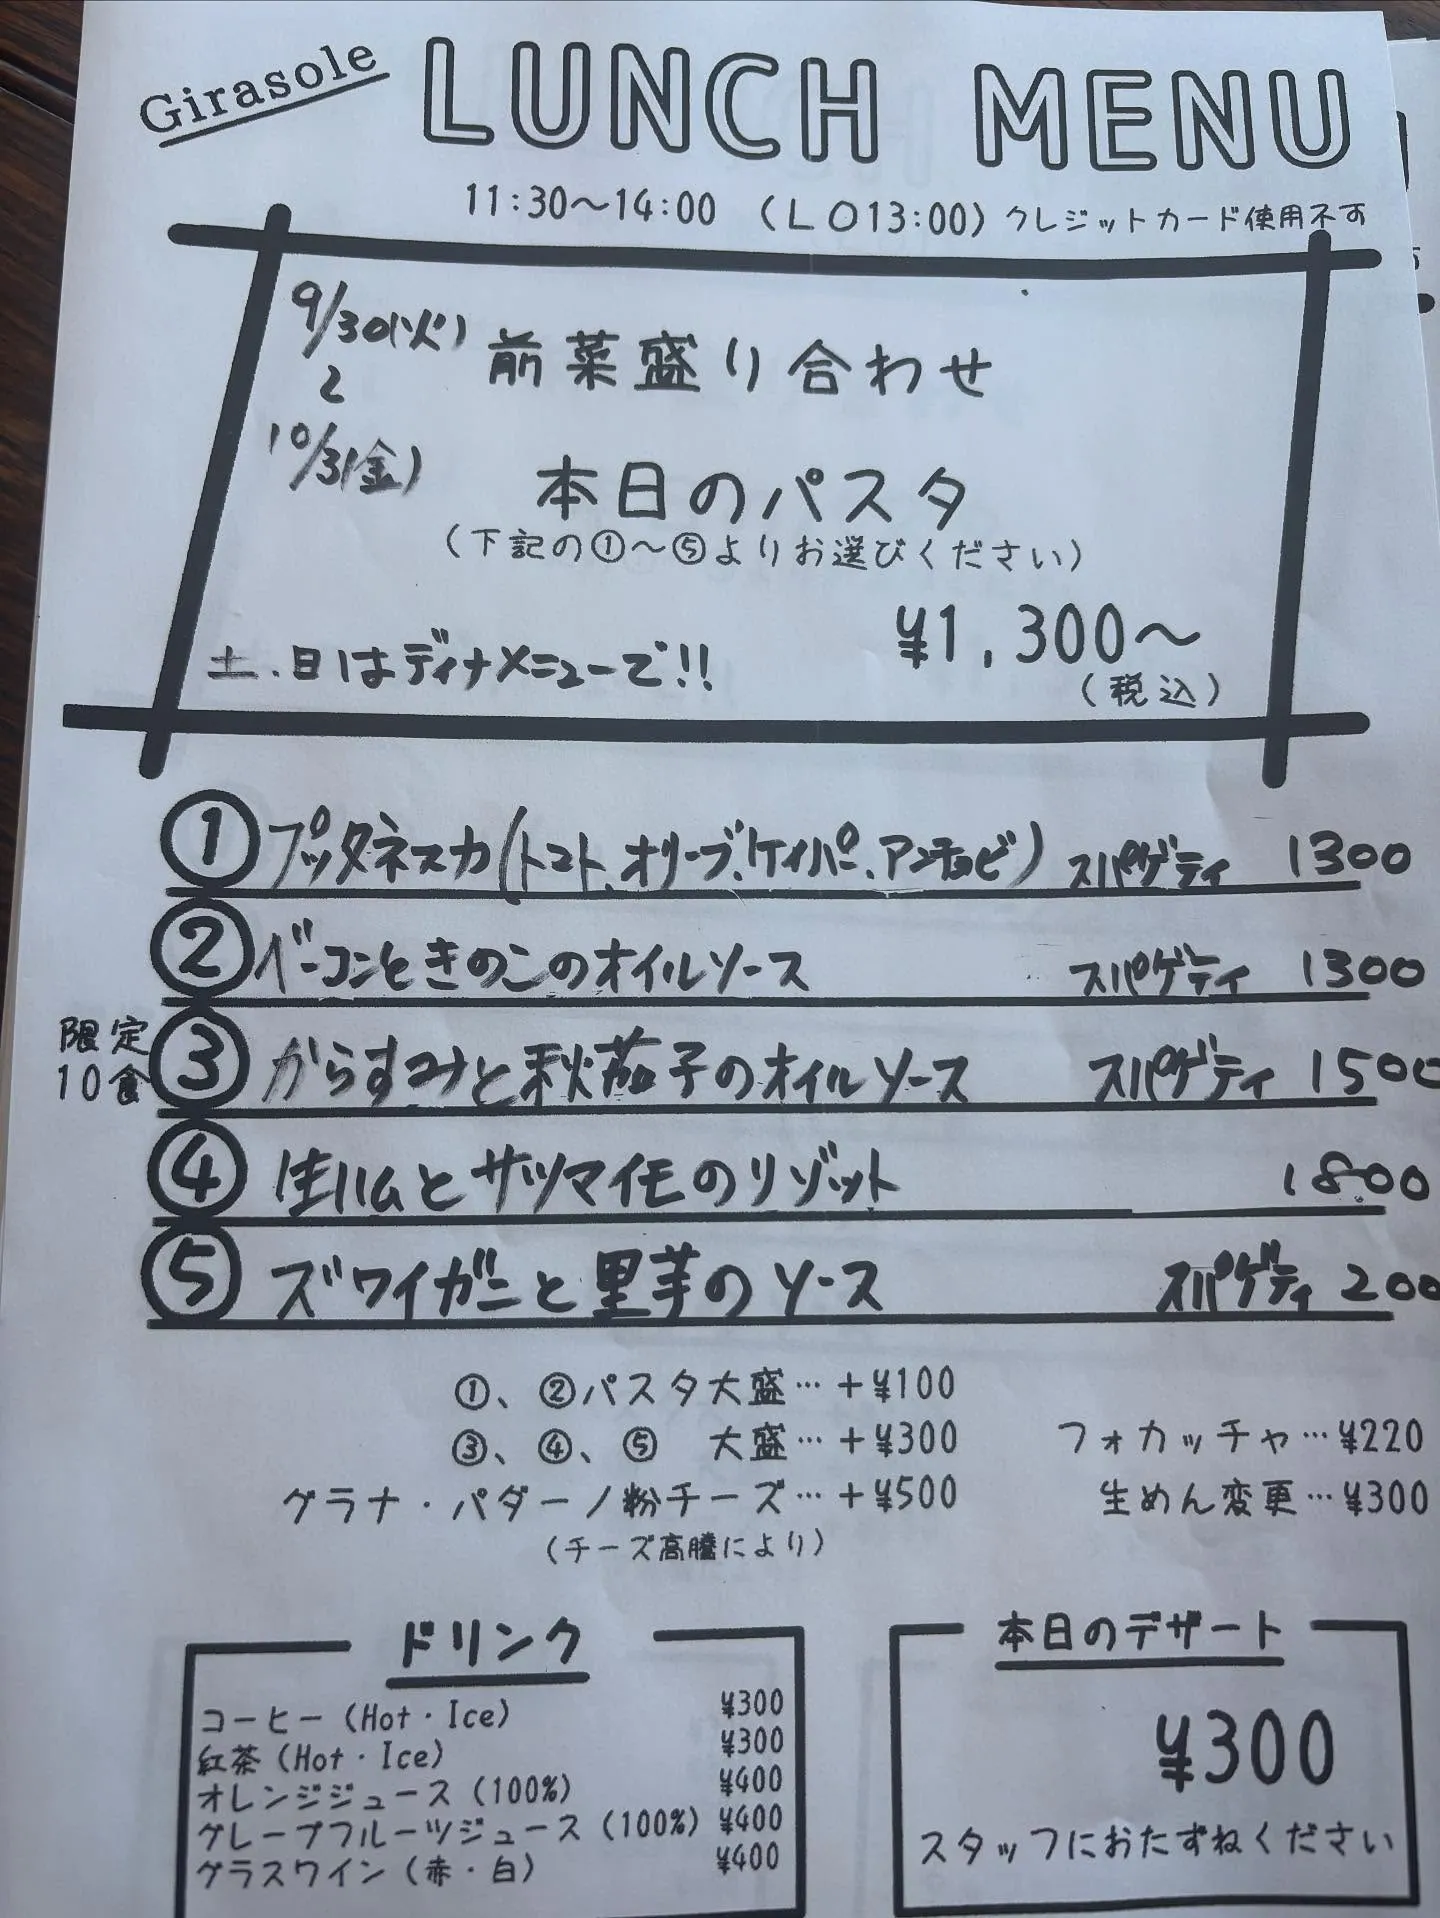 Girasole LUNCH MENU
11:30〜14:00 (LO13:00) クレジットカード使用不可
9/30(火) 前菜盛り合わせ
〜
10/3(金)
本日のパスタ
(下記の①〜⑤よりお選びください)
¥1,300〜
土.日はディナメニューで!!
(税込)
① プッタネスカ(トマト、オリーブ、ケイパー、アンチョビ) スパゲティ 1300
② ベーコンときのこのオイルソース スパゲティ 1300
限定10食 ③ からすみと秋茄子のオイルソース スパゲティ 1500
④ 生ハムとサツマイモのリゾット 1800
⑤ ズワイガニと里芋のソース スパゲティ 200
①、②パスタ大盛…+¥100
③、④、⑤ 大盛…+¥300 フォカッチャ…¥220
グラナ・パダーノ粉チーズ…+¥500 生めん変更…¥300
(チーズ高騰により)
ドリンク
コーヒー(Hot・Ice) ¥300
紅茶(Hot・Ice) ¥300
オレンジジュース(100%) ¥400
グレープフルーツジュース(100%) ¥400
グラスワイン(赤・白) ¥400
本日のデザート
¥300
スタッフにおたずねください